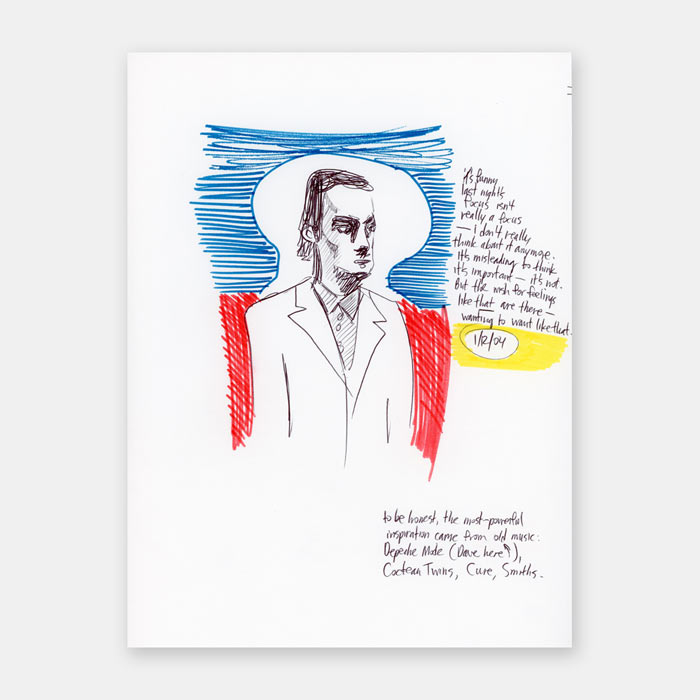 it's funny
last night's
focus isn't
really a focus
— I don't really
think about it anymore.
it's misleading to think
it's important — it's not.
But the wish for feelings
like that are there —
wanting to want like that.
1/2/04
to be honest, the most-powerful
inspiration came from old music:
Depeche Mode (Dave here↑),
Cocteau Twins, Cure, Smiths.